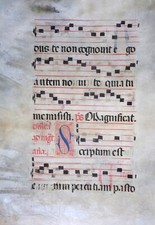 dus te non cognouit ego
autem noui te quia tu
me misisti. ps Magnificat.
Scriptum est
enim percutiam pasto